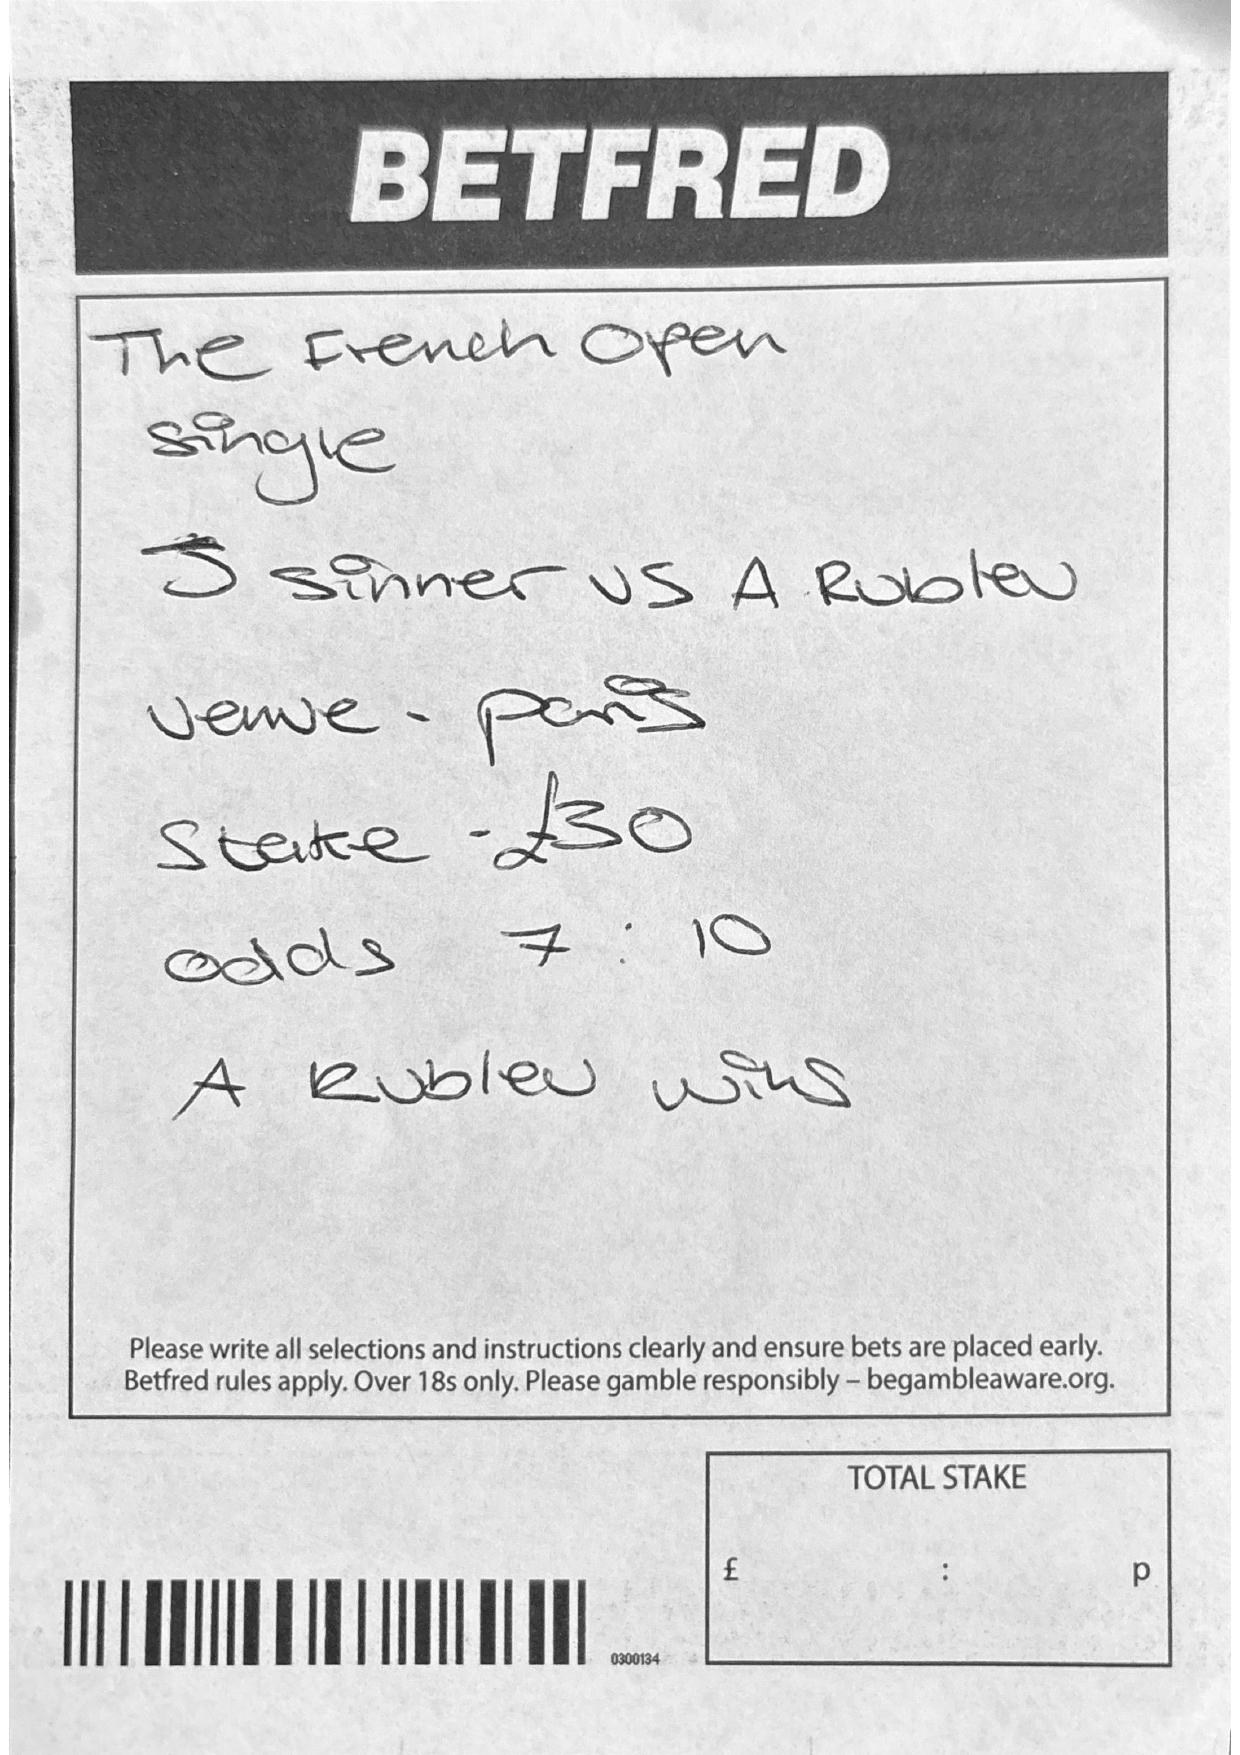 BETFRED
The French Open
single
J Sinner VS A Rublev
venue - paris
Stake - £30
odds 7 : 10
A Rublev wins
Please write all selections and instructions clearly and ensure bets are placed early.
Betfred rules apply. Over 18s only. Please gamble responsibly – begambleaware.org.
TOTAL STAKE
£ : p
0300134